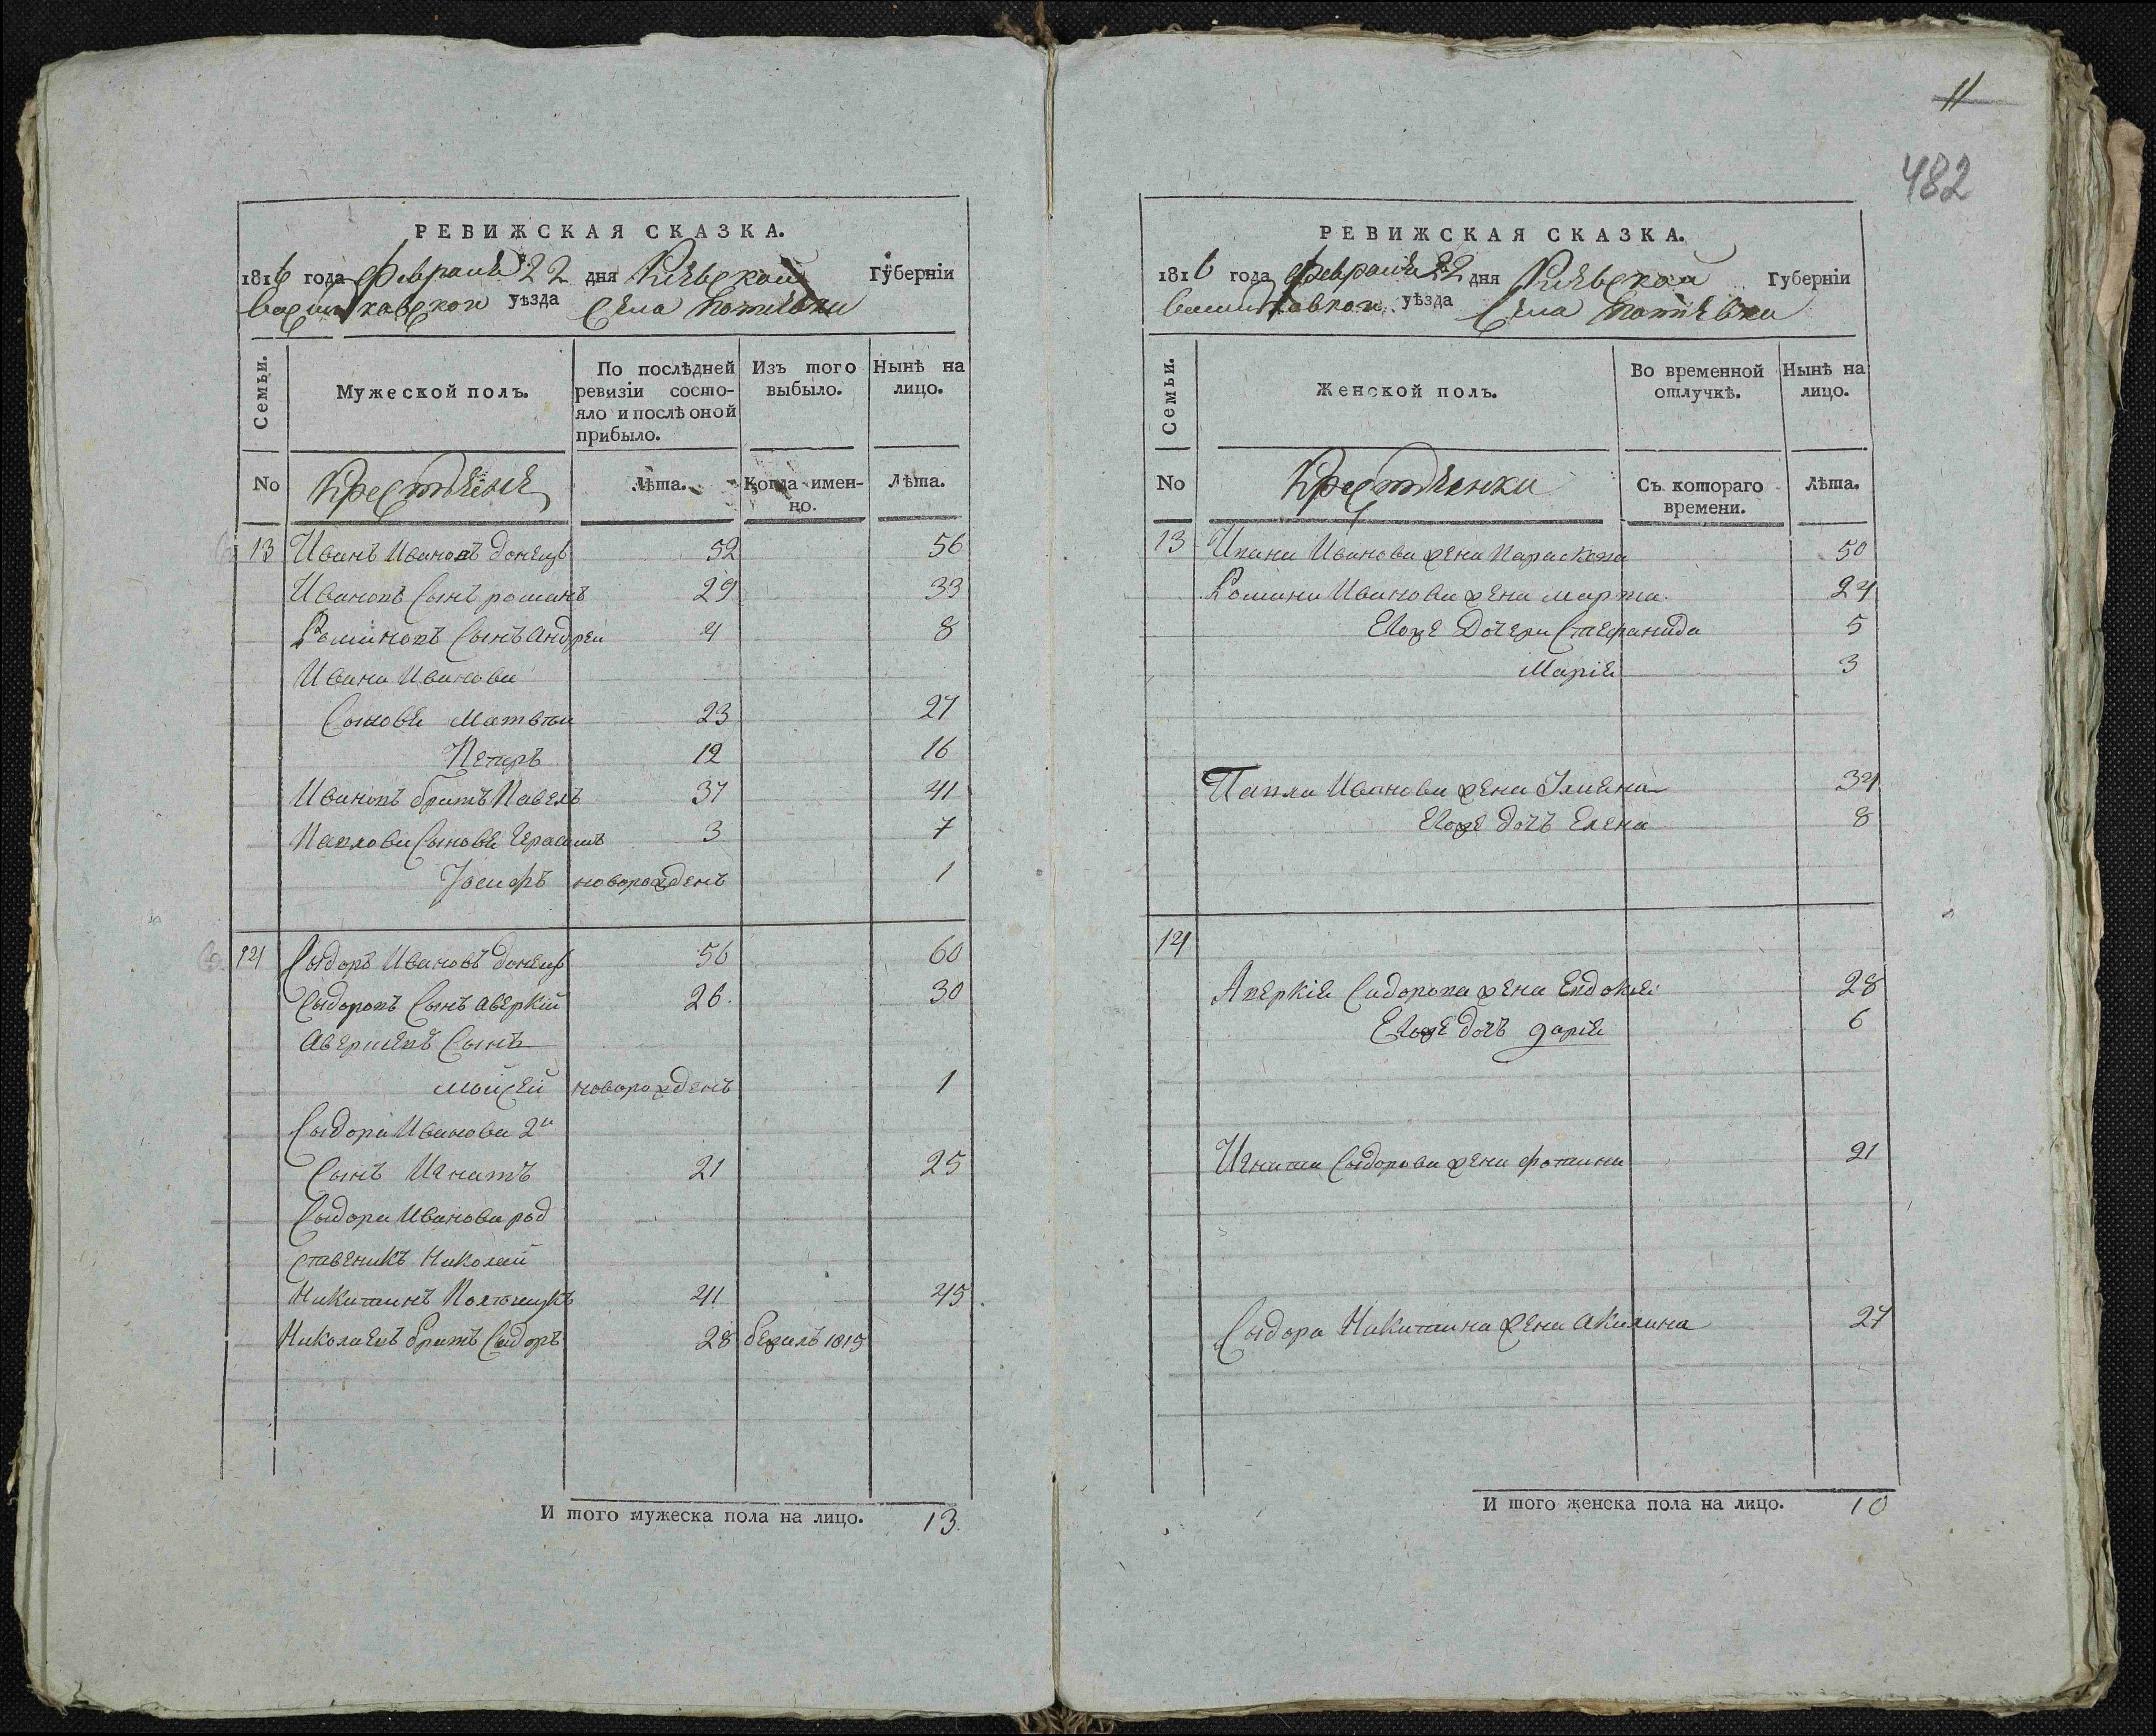 РЕВИЖСКАЯ СКАЗКА.
1816 года февраля 22 дня Кіевской Губерніи
Васильковскои уѣзда Села
Семьи.
Мужеской полъ.
По послѣдней ревизіи состо-
яло и послѣ оной
прибыло.
Изъ того выбыло.
Нынѣ на лицо.
No
Крестьяне
Лѣта.
Когда имен-
но.
Лѣта.
13 Иванъ Ивановъ Донецъ 52 56
Ивановъ Сынъ романъ 29 33
Романовъ Сынъ Андрей 4 8
Ивана Иванова
Сыновя Матвѣи 23 27
Петръ 12 16
Ивановъ братъ Павелъ 37 41
Павлови Сыновя Герасимъ 3 7
Іосифъ новорожденъ 1
14 Сыдоръ Ивановъ Донецъ 56 60
Сыдоровъ Сынъ аверкій 26. 30
Сынъ
Мойсей новорожденъ 1
Сыдора Иванова 2й
Сынъ Игнатъ 21 25
Сыдора Иванова род
ственикъ Николай
Никитинъ 41 45
Николаевъ братъ Сидоръ 28 бежалъ 1815
И того мужеска пола на лицо. 13.
11
482
РЕВИЖСКАЯ СКАЗКА.
1816 года февраля 22 дня Кіевской Губерніи
уѣзда Села
Семьи.
Женской полъ.
Во временной отлучкѣ.
Нынѣ на лицо.
No
Крестянки
Съ котораго времени.
Лѣта.
13 Ивана Иванова жена Параскева 50
Романа Иванова жена марта 24
Егоже Дочери Стефанида 5
Марія 3
Павла Иванова жена Уляна 34
Егоже дочъ Елена 8
14
Аверкія Сидорова жена Евдокія 28
Егоже дочъ дарія 6
Игната Сыдорова жена фотина 21
Сыдора Никитина жена акилина 27
И того женска пола на лицо. 10